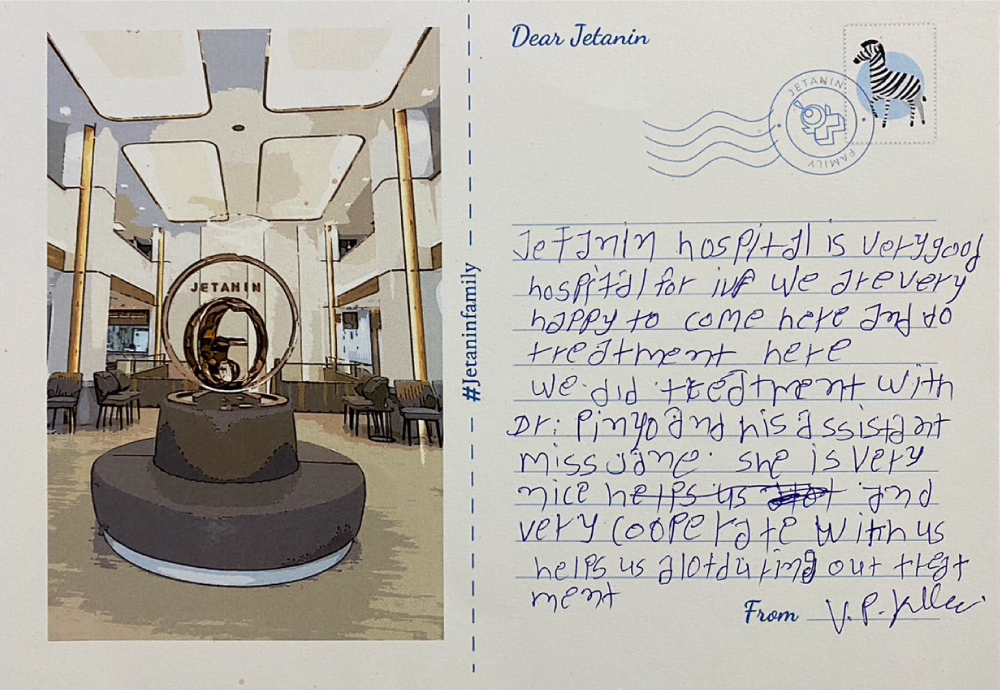 JETANIN
#Jetaninfamily
Dear Jetanin
JETANIN
FAMILY
Jetanin hospital is very good
hospital for ivf we are very
happy to come here and do
treatment here
we did treatment with
Dr. Pinyo and his assistant
miss Jane. she is very
nice helps us and
very cooperate with us
helps us alot during out treat
ment
From V.P.